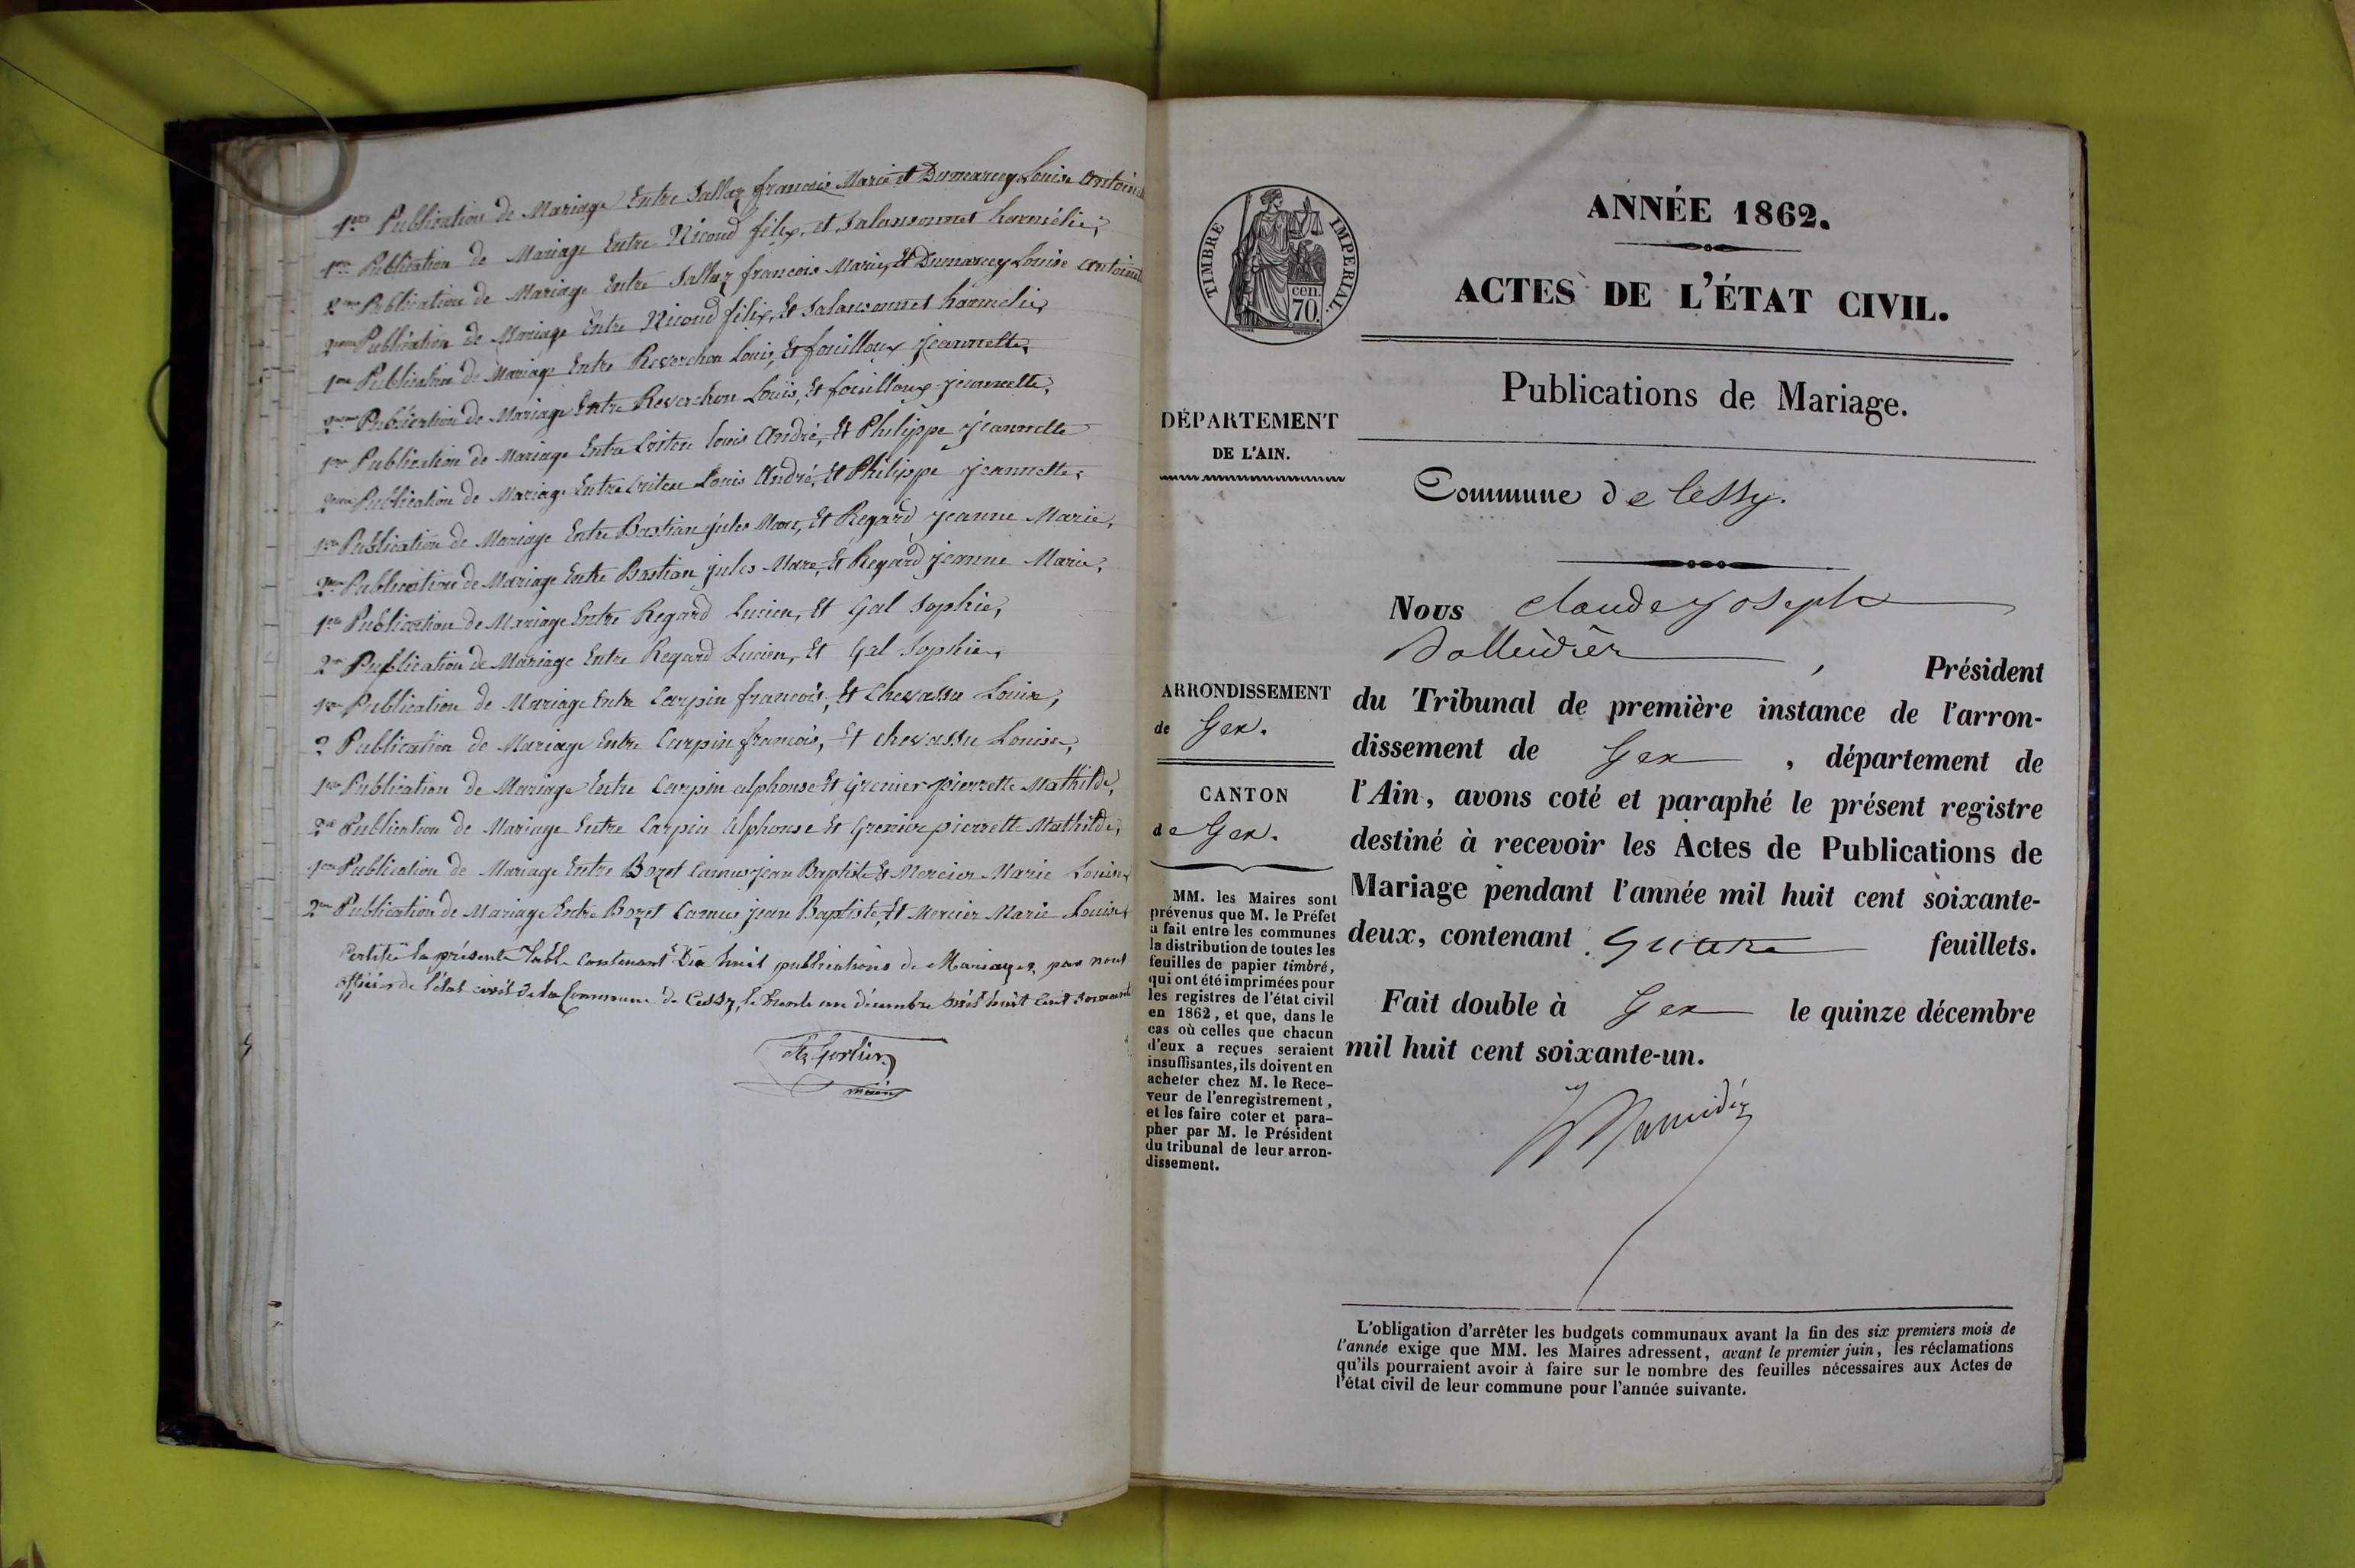 1ere Publication de Mariage Entre Sallaz francois Marie et Dumarcey Louise Antoine
1ere Publication de Mariage Entre Nicoud félix, et Salansonnet harmélie,
2eme Publication de Mariage Entre Sallaz francois Marie, Et Dumarcey Louise Antoine
2eme Publication de Mariage Entre Nicoud félix, Et Salansonnet harmelie,
1ere Publication de Mariage Entre Reverchon Louis, Et fouilloux Jeannette,
2eme Publication de Mariage Entre Reverchon Louis, Et fouilloux Jeannette,
1ere Publication de Mariage Entre louis André, Et Philippe Jeannette
2eme Publication de Mariage Entre Louis André, Et Philippe Jeannette,
1ere Publication de Mariage Entre Bastian jules Marc, Et Regard Jeanne Marie,
2me Publication de Mariage Entre Bastian jules Marc, Et Regard Jeanne Marie,
1ere Publication de Mariage Entre Regard Lucien, Et Gal Sophie,
2me Publication de Mariage Entre Regard Lucien, Et Gal Sophie,
1ere Publication de Mariage Entre Carpin francois, Et Chevassu Louise,
2 Publication de Mariage Entre Carpin francois, Et chevassu Louise,
1ere Publication de Mariage Entre Carpin alphonse Et Grenier pierrette Mathilde,
2me Publication de Mariage Entre Carpin Alphonse Et Grenier pierrette Mathilde,
1ere Publication de Mariage Entre Bozet Camus jean Baptiste Et Mercier Marie Louise,
2me Publication de Mariage Entre Bozet Camus jean Baptiste, Et Mercier Marie Louise,
Certifié la présente Table contenant Dix huit publications de Mariages, par nous
officier de l'état civil de la Commune de Cessy, le trente un décembre mil huit cent soixante
maire
TIMBRE IMPERIAL.
cen.
70.
ANNÉE 1862.
ACTES DE L'ÉTAT CIVIL.
Publications de Mariage.
DÉPARTEMENT
DE L'AIN.
Commune de Cessy.
Nous Claude Joseph
, Président
du Tribunal de première instance de l'arron-
dissement de Gex , département de
l'Ain, avons coté et paraphé le présent registre
destiné à recevoir les Actes de Publications de
Mariage pendant l'année mil huit cent soixante-
deux, contenant quatre feuillets.
Fait double à Gex le quinze décembre
mil huit cent soixante-un.
ARRONDISSEMENT
de Gex.
CANTON
de Gex.
MM. les Maires sont
prévenus que M. le Préfet
a fait entre les communes
la distribution de toutes les
feuilles de papier timbré,
qui ont été imprimées pour
les registres de l'état civil
en 1862, et que, dans le
cas où celles que chacun
d'eux a reçues seraient
insuffisantes, ils doivent en
acheter chez M. le Rece-
veur de l'enregistrement,
et les faire coter et para-
pher par M. le Président
du tribunal de leur arron-
dissement.
L'obligation d'arrêter les budgets communaux avant la fin des six premiers mois de
l'année exige que MM. les Maires adressent, avant le premier juin, les réclamations
qu'ils pourraient avoir à faire sur le nombre des feuilles nécessaires aux Actes de
l'état civil de leur commune pour l'année suivante.